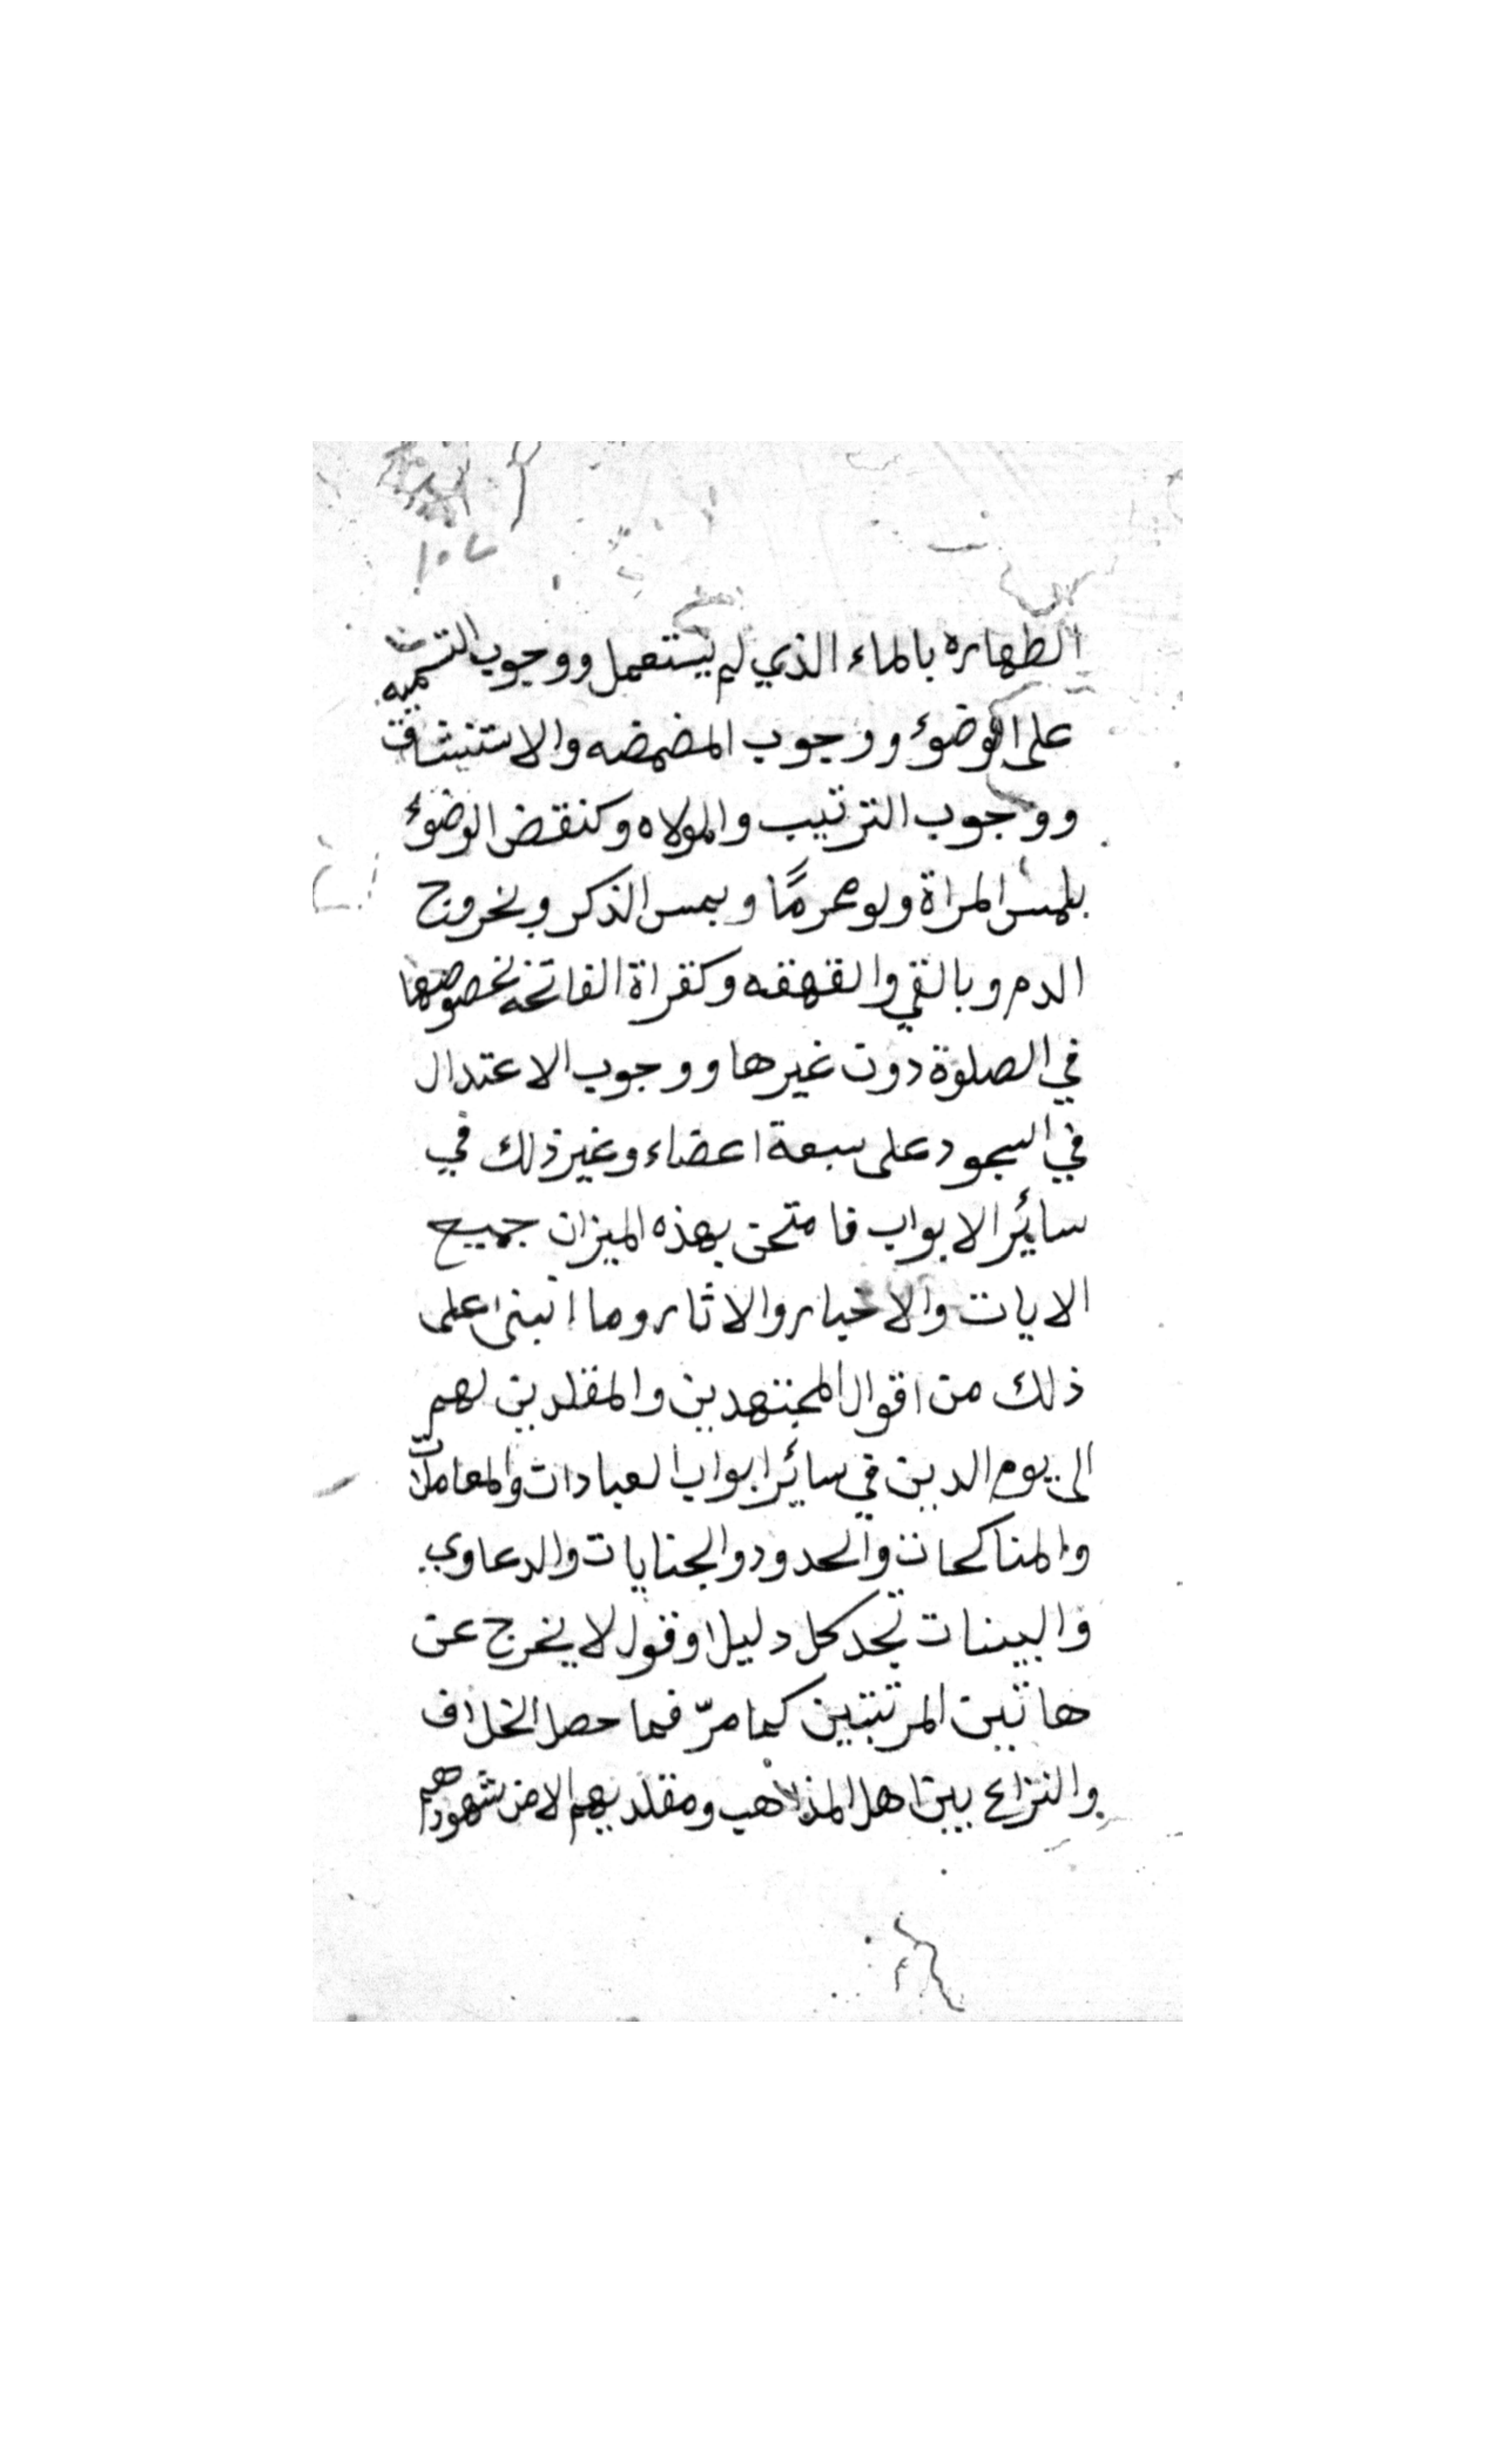 ١٠٧
الطهاره بالماء الذي لم يستعمل ووجوب التسميه
على الوضوء ووجوب المضمضه والاستنشاق
ووجوب الترتيب والمولاه وكنقض الوضوء
بلمس المراة ولو محرمًا وبمس الذكر وبخروج
الدم وبالقي والقهقه وكقراة الفاتحه بخصوصها
في الصلوة دون غيرها ووجوب الاعتدال
في السجود على سبعة اعضاء وغير ذلك في
سائر الابواب فامتحن بهذه الميزان جميع
الايات والاخبار والاثار وما انبنى على
ذلك من اقوال المجتهدين والمقلدين لهم
الى يوم الدين في سائر ابواب العبادات والمعاملات
والمناكحات والحدود والجنايات والدعاوي
والبينات تجد كل دليل او قول لا يخرج عن
هاتين المرتبتين كما مرّ فما حصل الخلاف
والنزاع بين اهل المذاهب ومقلديهم الا من شهودهم